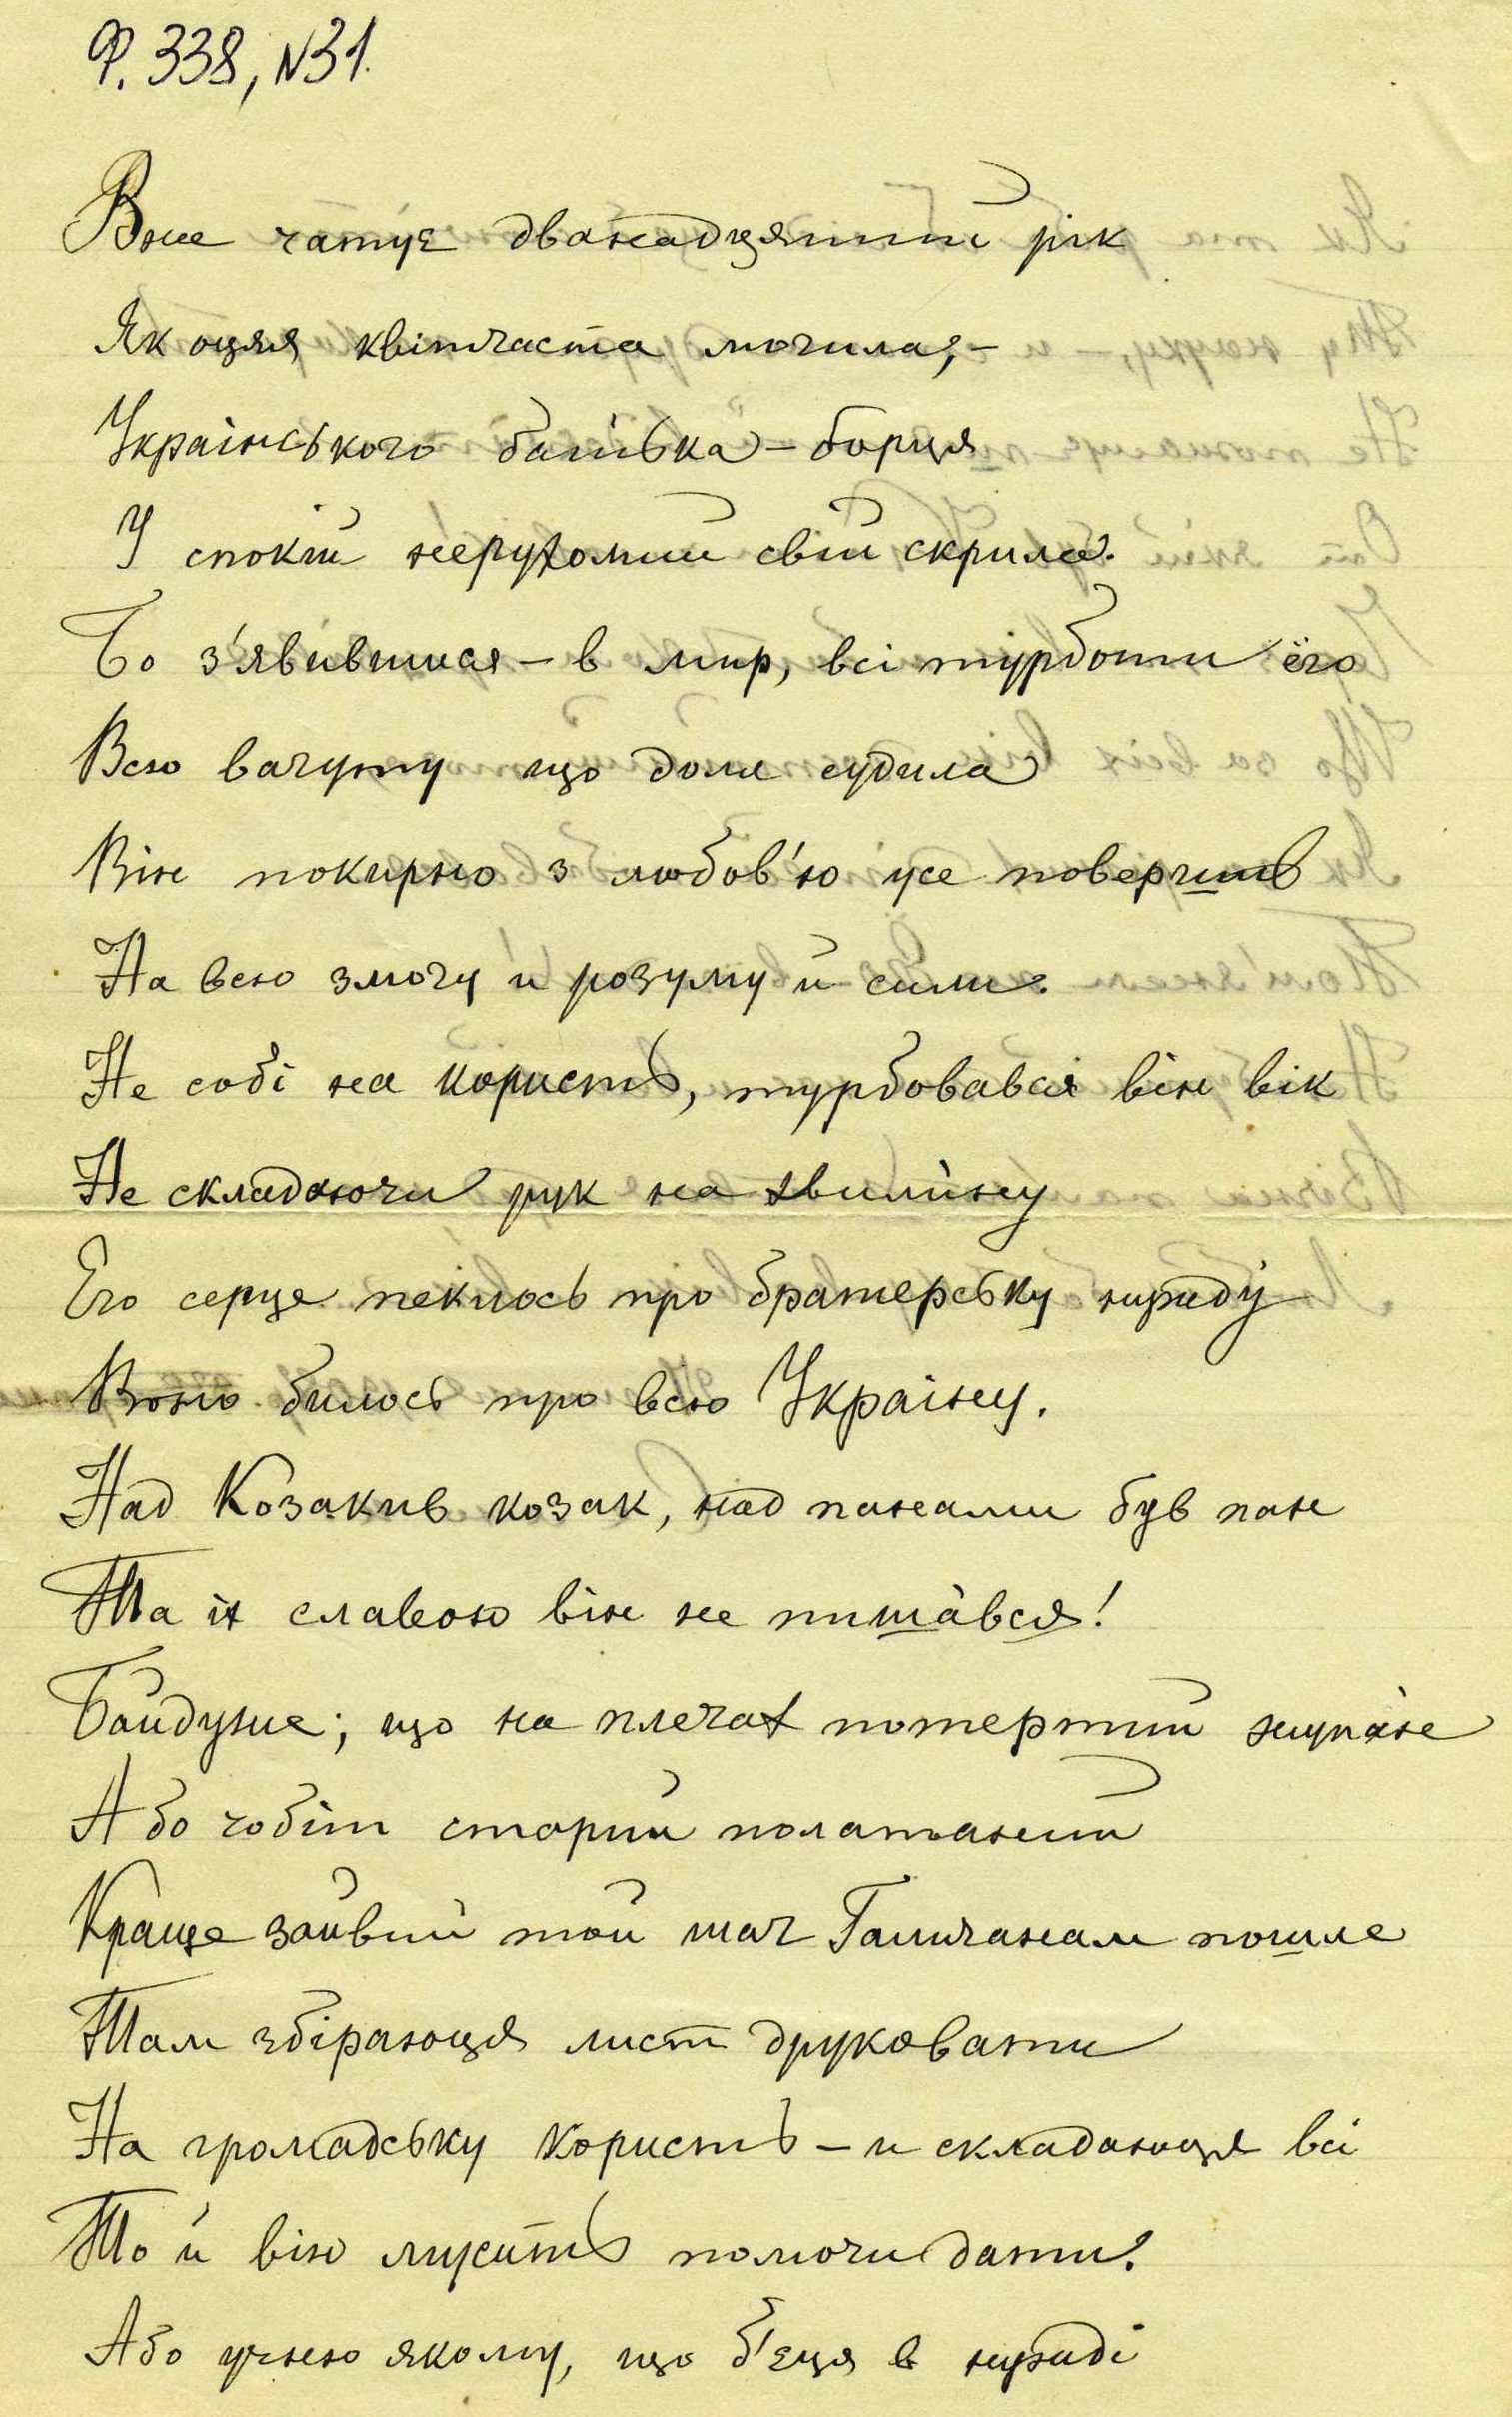 Ф. 338, N31.
Вже чатує дванадцятий рік
Як оцяя квітчаста могила,-
Украінського батька - борця
У спокій нерухомий свій скрила.
Бо з'явившися - в мир, всі турботи ёго
Всю вагуту що доля судила
Він покирно з любов'ю усе повершив
На всю змогу и розуму й сили.
Не собі на користь, турбовався він вік
Не складаючи рук на хвилину
Его серце пеклось про братерську нужду
Воно билось про всю Украіну.
Над Козакив козак, над панами був пан
Та іх славою він не пишався!
Байдуже; що на плечах потертий жупан
Або чобіт старий полатаний
Краще зайвий той шаг Галичанам пошле
Там збіраюця лист друковати
На громадську користь - и складаюця всі
То й він мусить помочи дати.
Або учню якому, що б'єця в нужді